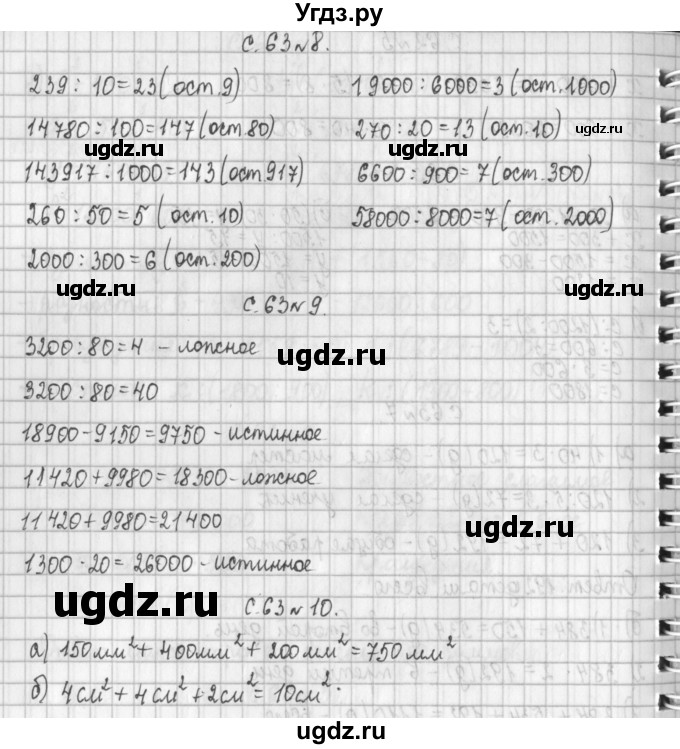 Угдз.ру
с. 63 №8.
239 : 10 = 23 (ост. 9)
14780 : 100 = 147 (ост. 80)
143917 : 1000 = 143 (ост. 917)
260 : 50 = 5 (ост. 10)
2000 : 300 = 6 (ост. 200)
19000 : 6000 = 3 (ост. 1000)
270 : 20 = 13 (ост. 10)
6600 : 900 = 7 (ост. 300)
58000 : 8000 = 7 (ост. 2000)
ugdz.ru
ugdz.ru
ugdz.ru
ugdz.ru
с. 63 №9.
3200 : 80 = 4 – ложное
ugdz.ru
3200 : 80 = 40
18900 - 9150 = 9750 - истинное
11420 + 9980 = 18300 - ложное
11420 + 9980 = 21400
ugdz.ru
1300 · 20 = 26000 - истинное
ugdz.ru
с. 63 № 10.
а) 150 мм² + 400 мм² + 200 мм² = 750 мм²
б) 4 см² + 4 см² + 2 см² = 10 см².
ugdz.ru
Угдз.ру